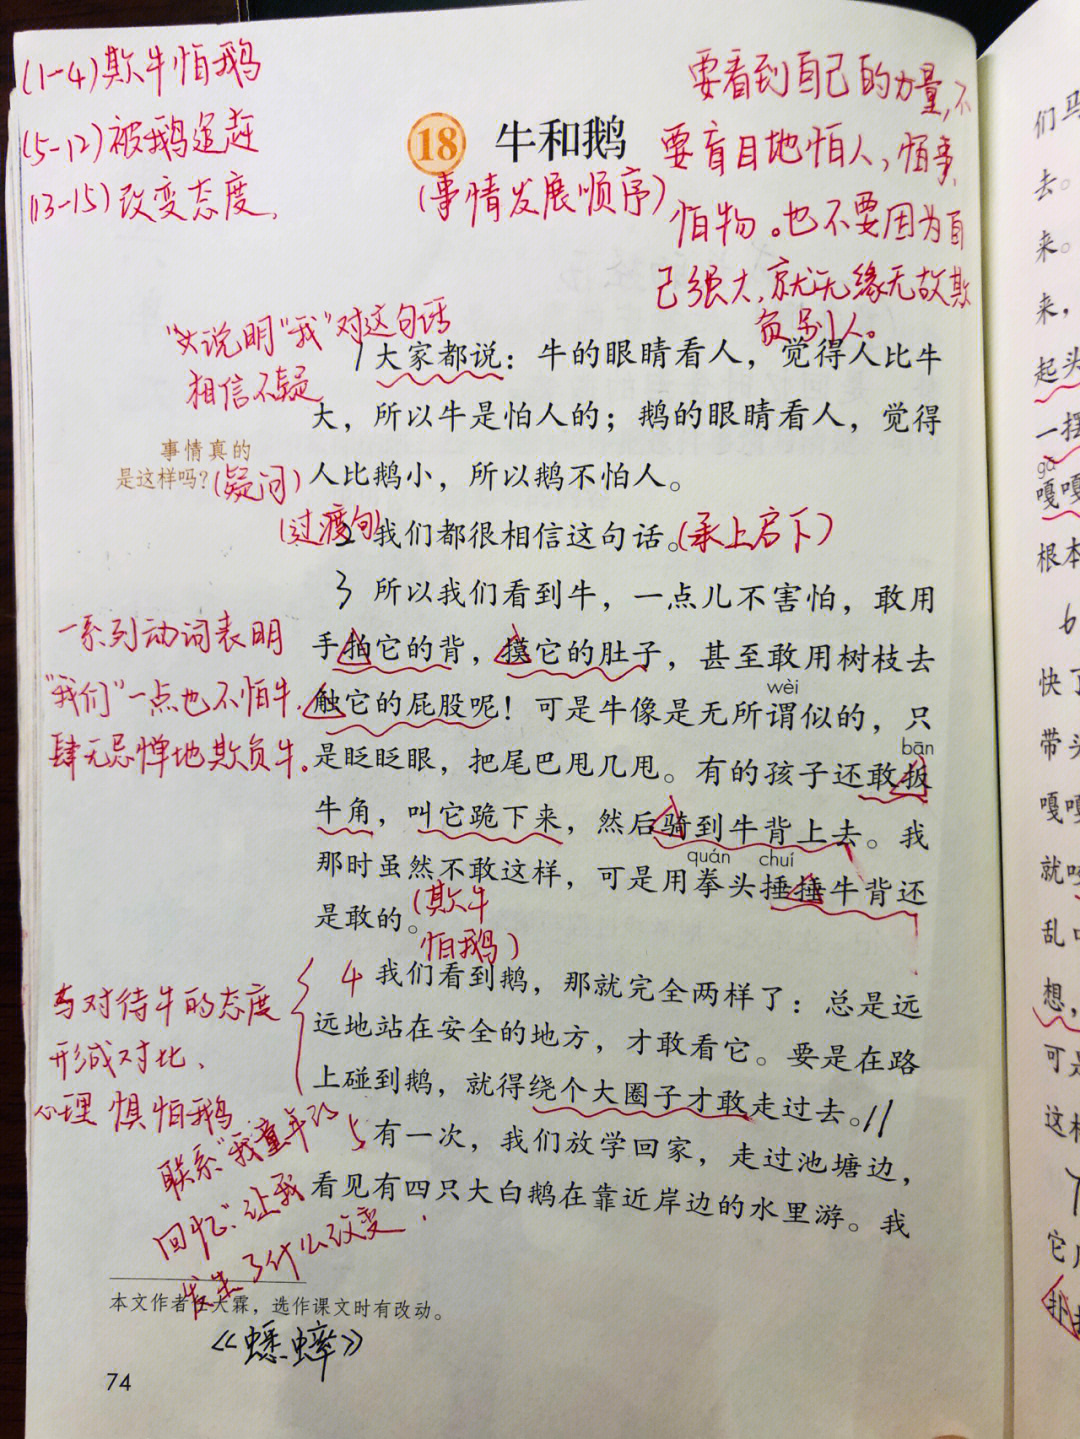 (1-4)欺牛怕鹅
(5-12)被鹅追赶
(13-15)改变态度.
18 牛和鹅
(事情发展顺序)
要看到自己的力量,不
要盲目地怕人,怕事,
怕物。也不要因为自
己强大,就无缘无故欺
负别人。
说明"我"对这句话
相信不疑
1 大家都说：牛的眼睛看人，觉得人比牛
大，所以牛是怕人的；鹅的眼睛看人，觉得
人比鹅小，所以鹅不怕人。
事情真的
是这样吗？(疑问)
(过渡句)
2 我们都很相信这句话。(承上启下)
3 所以我们看到牛，一点儿不害怕，敢用
手拍它的背，摸它的肚子，甚至敢用树枝去
wèi
触它的屁股呢！可是牛像是无所谓似的，只
bān
是眨眨眼，把尾巴甩几甩。有的孩子还敢扳
牛角，叫它跪下来，然后骑到牛背上去。我
quán chuí
那时虽然不敢这样，可是用拳头捶捶牛背还
是敢的。(欺牛
怕鹅)
一系列动词表明
"我们"一点也不怕牛.
肆无忌惮地欺负牛。
4 我们看到鹅，那就完全两样了：总是远
远地站在安全的地方，才敢看它。要是在路
上碰到鹅，就得绕个大圈子才敢走过去。//
与对待牛的态度
形成对比、
心理 惧怕鹅
5 有一次，我们放学回家，走过池塘边，
看见有四只大白鹅在靠近岸边的水里游。我
联系"我童年的
回忆"让我
发生了什么改变.
本文作者任大霖，选作课文时有改动。
《蟋蟀》
74
们马
去。
来。
来，
起头
一摆
gā
嘎嘎
根本
6
快了
带头
嘎嘎
就
乱叫
想，
可是
这样
7
它
扑